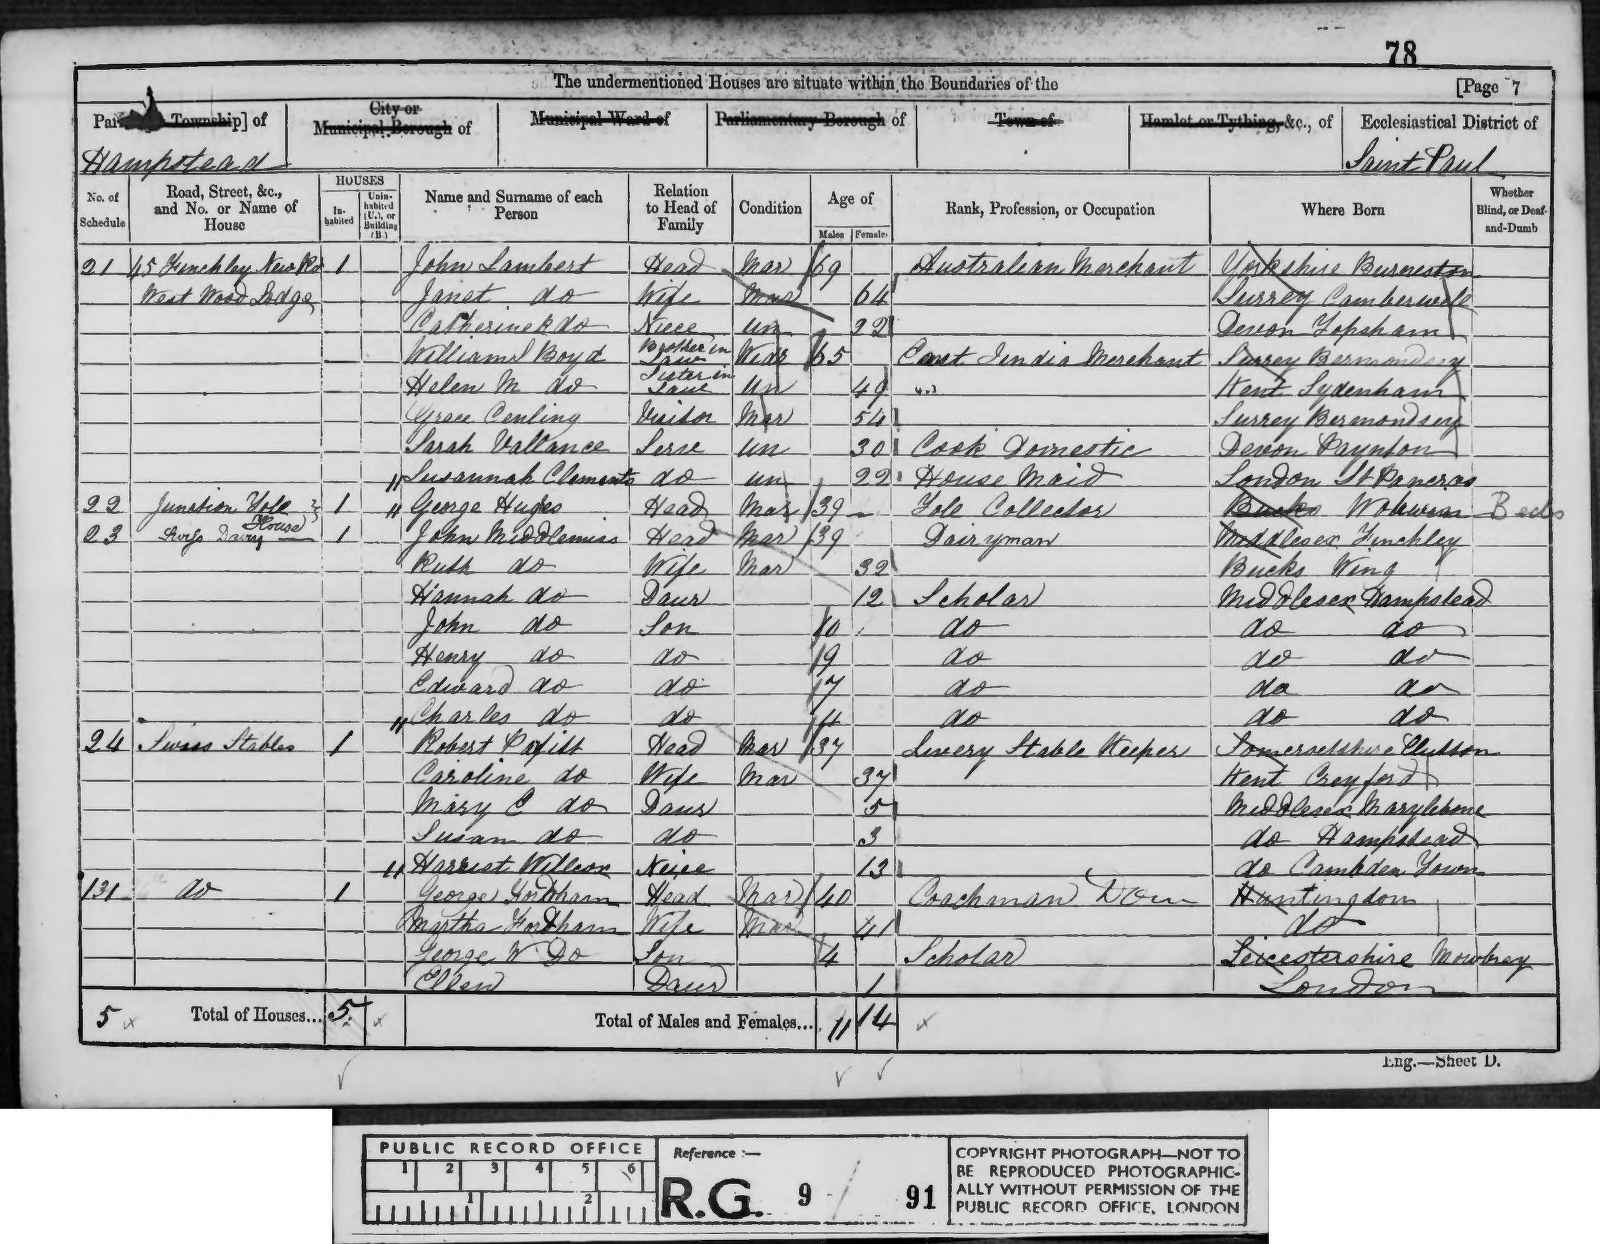 78
The undermentioned Houses are situate within the Boundaries of the [Page 7
Township] of City or Municipal Borough of Municipal Ward of Parliamentary Borough of Town of Hamlet or Tything, &c., of Ecclesiastical District of
Hampstead Saint Paul
No. of Schedule Road, Street, &c., and No. or Name of House HOUSES Inhabited Uninhabited (U.), or Building (B.) Name and Surname of each Person Relation to Head of Family Condition Age of Males Females Rank, Profession, or Occupation Where Born Whether Blind, or Deaf-and-Dumb
21 45 Finchley New Rd 1 John Lambert Head Mar 69 Australian Merchant Yorkshire Burneston
West Wood Lodge Janet do Wife Mar 64 Surrey Camberwell
Catherine do Niece Un 22 Devon Topsham
William Boyd Brother in Law Widr 65 East India Merchant Surrey Bermondsey
Helen M do Sister in Law Un 49 Kent Sydenham
Grace Visitor Mar 54 Surrey Bermondsey
Sarah Vallance Serv Un 30 Cook Domestic Devon Paynton
Susannah Clements do Un 22 House Maid London St Pancras
22 Junction Tole House 1 George Head Mar 39 Tole Collector Bucks Beds
23 Dairy 1 John Middlemiss Head Mar 39 Dairyman Middlesex Finchley
Ruth do Wife Mar 32 Bucks Wing
Hannah do Daur 12 Scholar Middlesex Hampstead
John do Son 10 do do do
Henry do do 9 do do do
Edward do do 7 do do do
Charles do do 4 do do do
24 Swiss Stables 1 Robert Head Mar 37 Livery Stable Keeper Somersetshire Clutton
Caroline do Wife Mar 37 Kent Creyford
Mary C do Daur 5 Middlesex Marylebone
Susan do do 3 do Hampstead
Harriet Willcox Neice 13 do Cambden Town
131 do 1 George Fordham Head Mar 40 Coachman Huntingdon
Martha Fordham Wife Mar 41 do
George W Do Son 4 Scholar Leicestershire Mowbray
Ellen Daur 1 London
5 Total of Houses... 5 Total of Males and Females... 11 14
Eng.—Sheet D.
PUBLIC RECORD OFFICE
1 2 3 4 5 6
1 2
Reference :—
R.G. 9 / 91
COPYRIGHT PHOTOGRAPH—NOT TO
BE REPRODUCED PHOTOGRAPHIC-
ALLY WITHOUT PERMISSION OF THE
PUBLIC RECORD OFFICE, LONDON